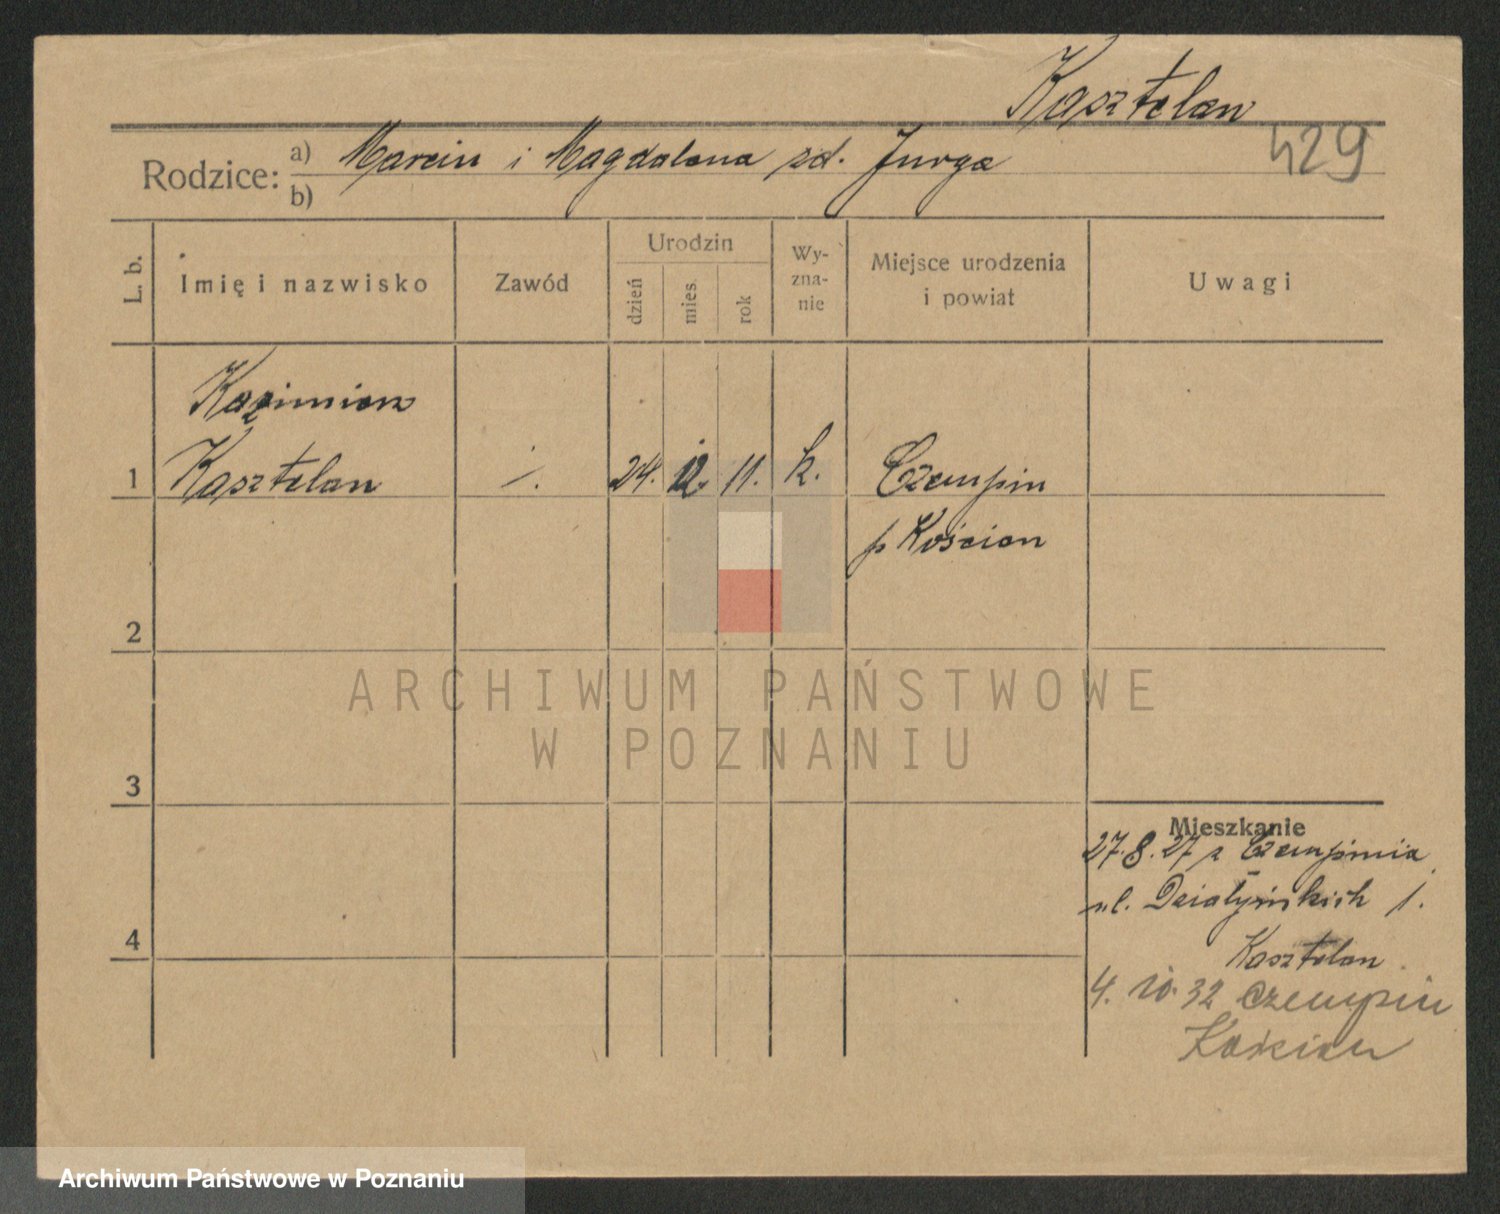 Kasztelan
429
Rodzice: a) Marcin i Magdalena zd. Jurga
b)
L. b.
Imię i nazwisko
Zawód
Urodzin
dzień
mies.
rok
Wy-
zna-
nie
Miejsce urodzenia
i powiat
Uwagi
Kazimierz
1 Kasztelan 24. 12. 11. k. Czempin
p Kościan
2
3
4
Mieszkanie
27.8.27 z Czempinia
ul. Działyńskich 1.
Kasztelan
4. 10. 32 Czempin
Kościan
ARCHIWUM PAŃSTWOWE
W POZNANIU
Archiwum Państwowe w Poznaniu